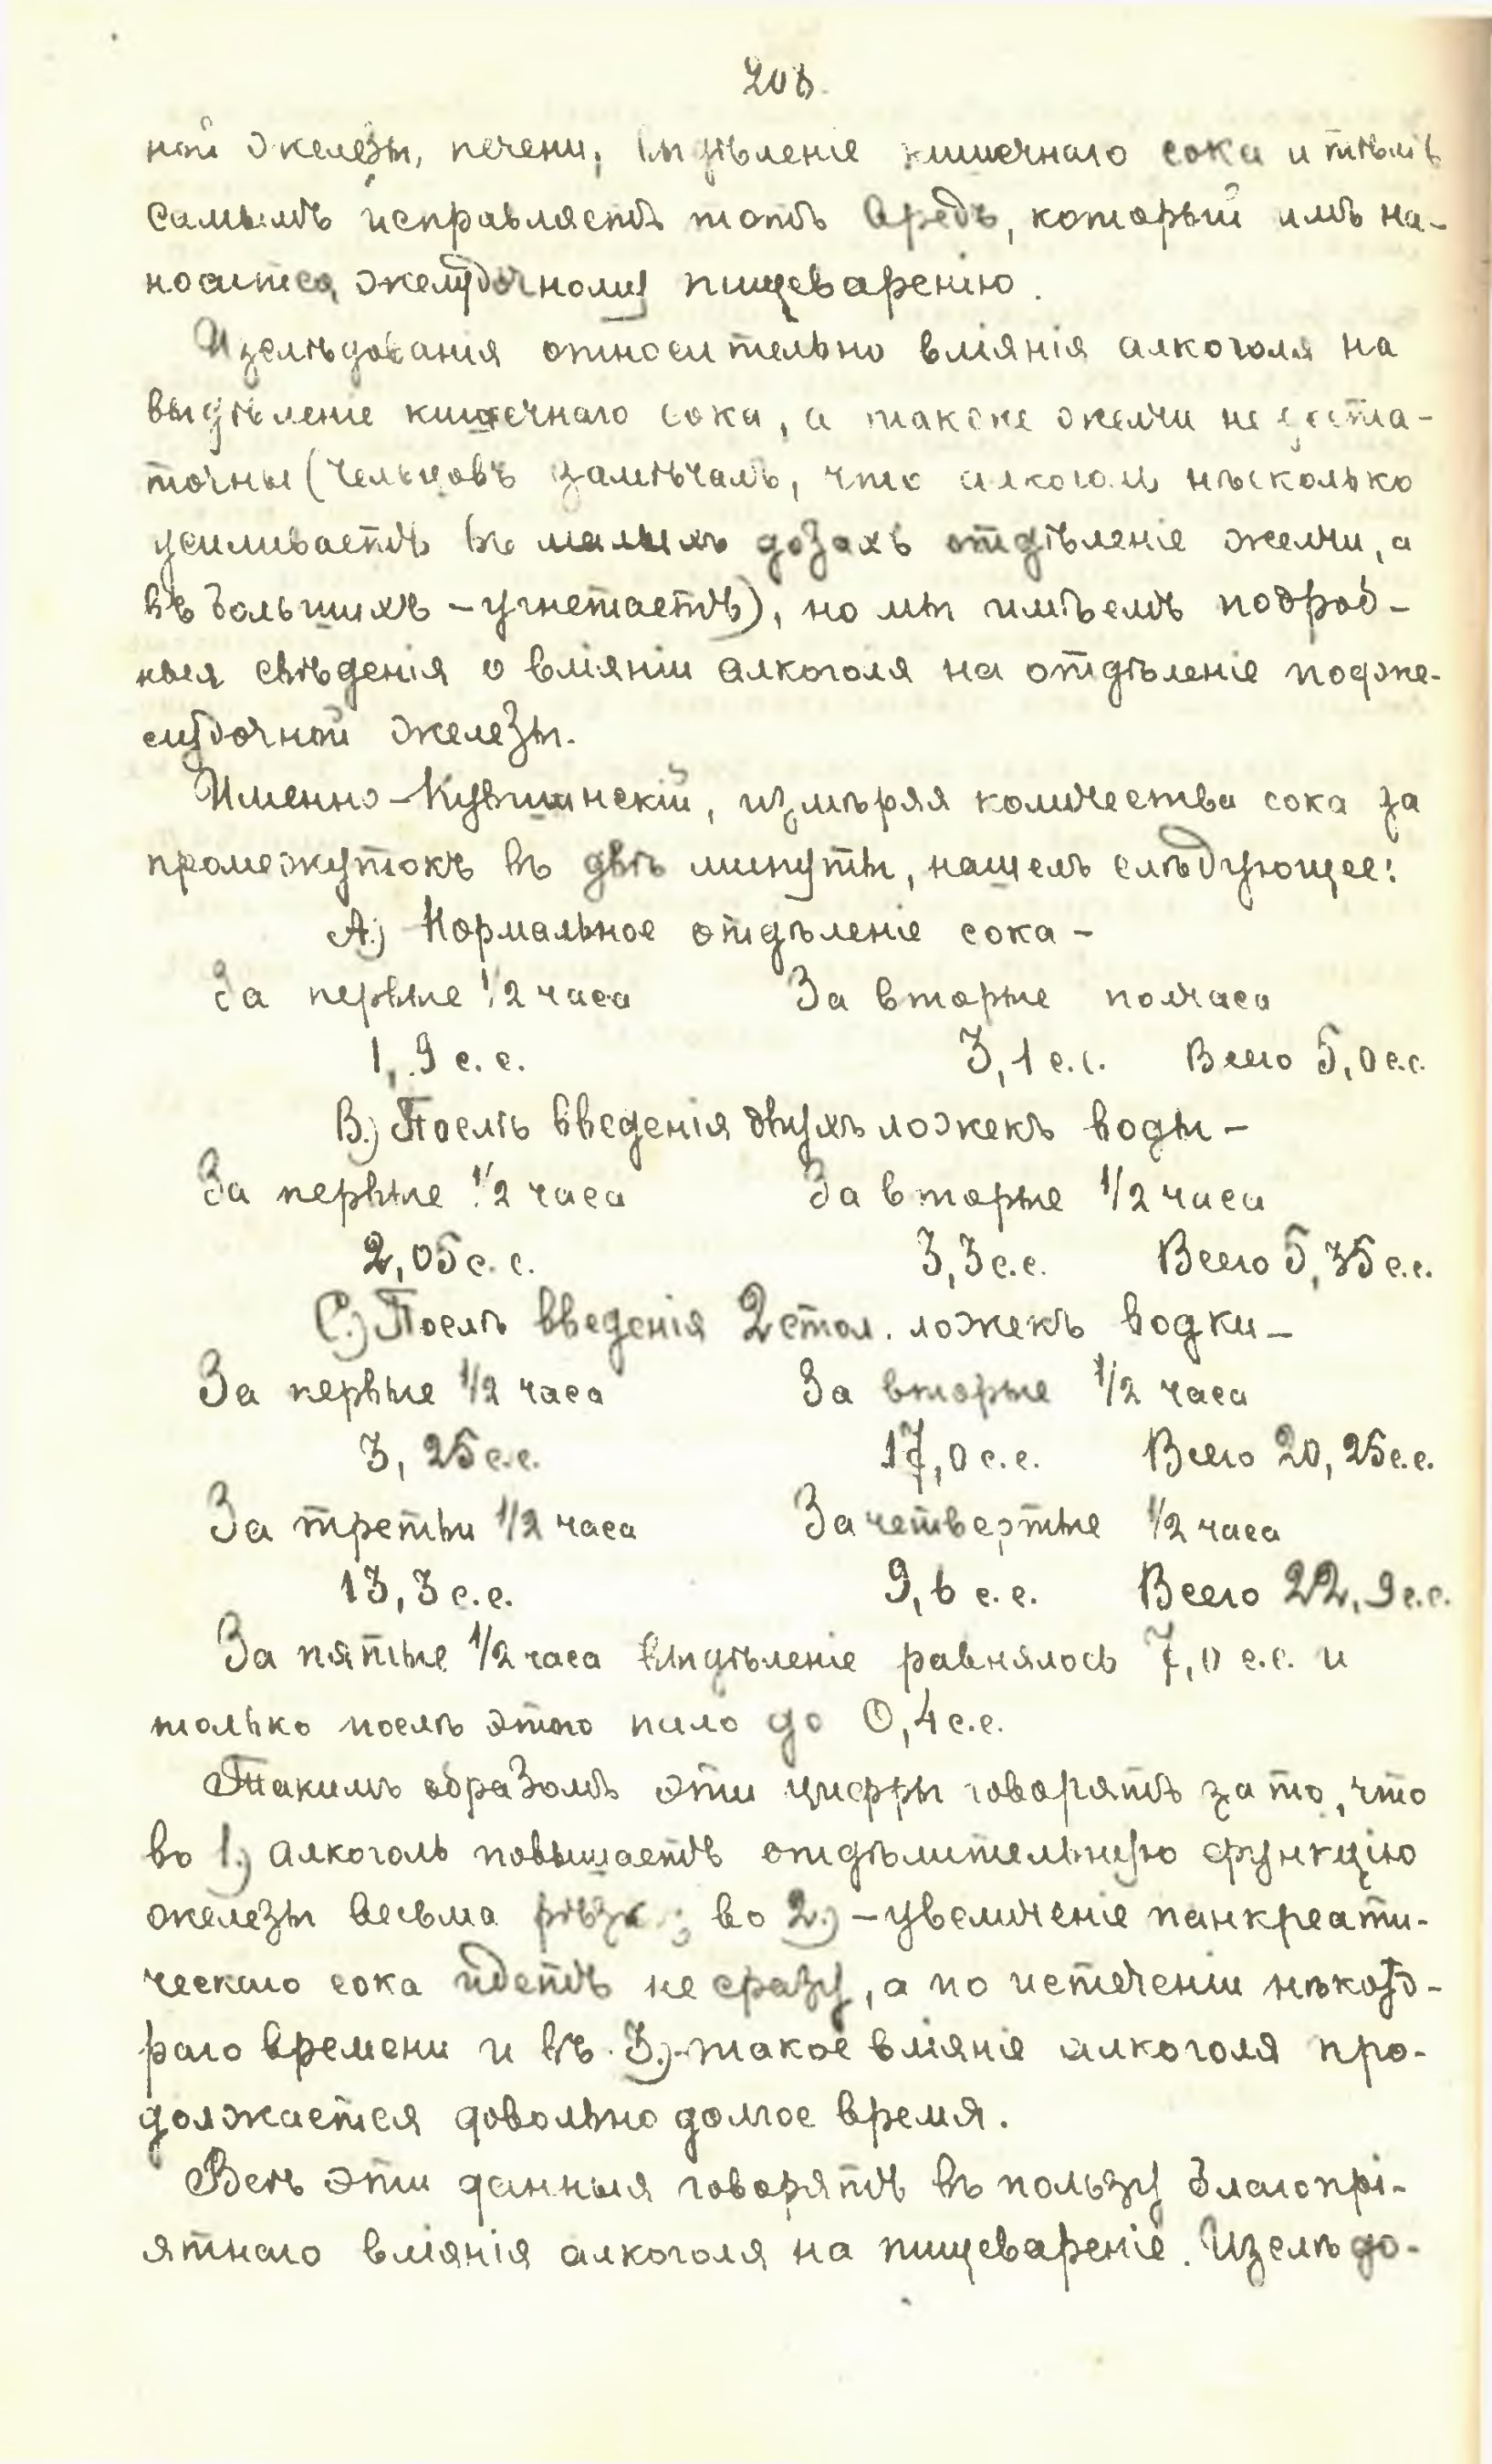 208.
ной железы, печени, выдѣленіе кишечнаго сока и тѣмъ
самымъ исправляетъ тотъ вредъ, который имъ на-
носится желудочному пищеваренію.
Изслѣдованія относительно вліянія алкоголя на
выдѣленіе кишечнаго сока, а также желчи не доста-
точны (Чельцовъ замѣчалъ, что алкоголь нѣсколько
усиливаетъ въ малыхъ дозахъ отдѣленіе желчи, а
въ большихъ - угнетаетъ), но мы имѣемъ подроб-
ныя свѣденія о вліяніи алкоголя на отдѣленіе подже-
лудочной железы.
Именно - Кувшинскій, измѣряя количества сока за
промежутокъ въ двѣ минуты, нашелъ слѣдующее:
А.) Нормальное отдѣленіе сока -
За первые 1/2 часа За вторые полчаса
1,9 с.с. 3,1 с.с. Всего 5,0 с.с.
В.) Послѣ введенія двухъ ложекъ воды -
За первые 1/2 часа За вторые 1/2 часа
2,05 с.с. 3,3 с.с. Всего 5,35 с.с.
С.) Послѣ введенія 2 стол. ложекъ водки -
За первые 1/2 часа За вторые 1/2 часа
3,25 с.с. 17,0 с.с. Всего 20,25 с.с.
За третьи 1/2 часа За четвертые 1/2 часа
13,3 с.с. 9,6 с.с. Всего 22,9 с.с.
За пятые 1/2 часа выдѣленіе равнялось 7,0 с.с. и
только послѣ этого пало до 0,4 с.с.
Такимъ образомъ эти цифры говорятъ за то, что
во 1.) алкоголь повышаетъ отдѣлительную функцію
железы весьма рѣзко; во 2.) - увеличеніе панкреати-
ческаго сока идетъ не сразу, а по истеченіи нѣкото-
раго времени и въ 3.) - такое вліяніе алкоголя про-
должается довольно долгое время.
Всѣ эти данныя говорятъ въ пользу благопрі-
ятнаго вліянія алкоголя на пищевареніе. Изслѣдо-